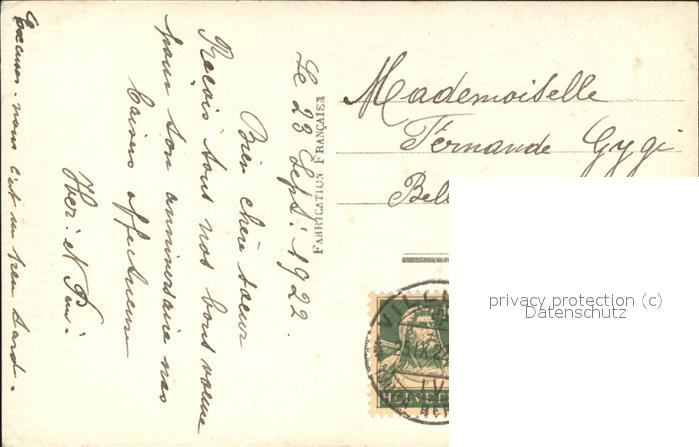 Le 23 Sept. 1922.
Bien chère soeur
Reçois tous nos bons voeux
pour ton anniversaire nos
baisers affectueux
Excuses-nous c'est un peu tard.
FABRICATION FRANÇAISE
Mademoiselle
Fernande Gygi
Bell
privacy protection (c)
Datenschutz
HELVE